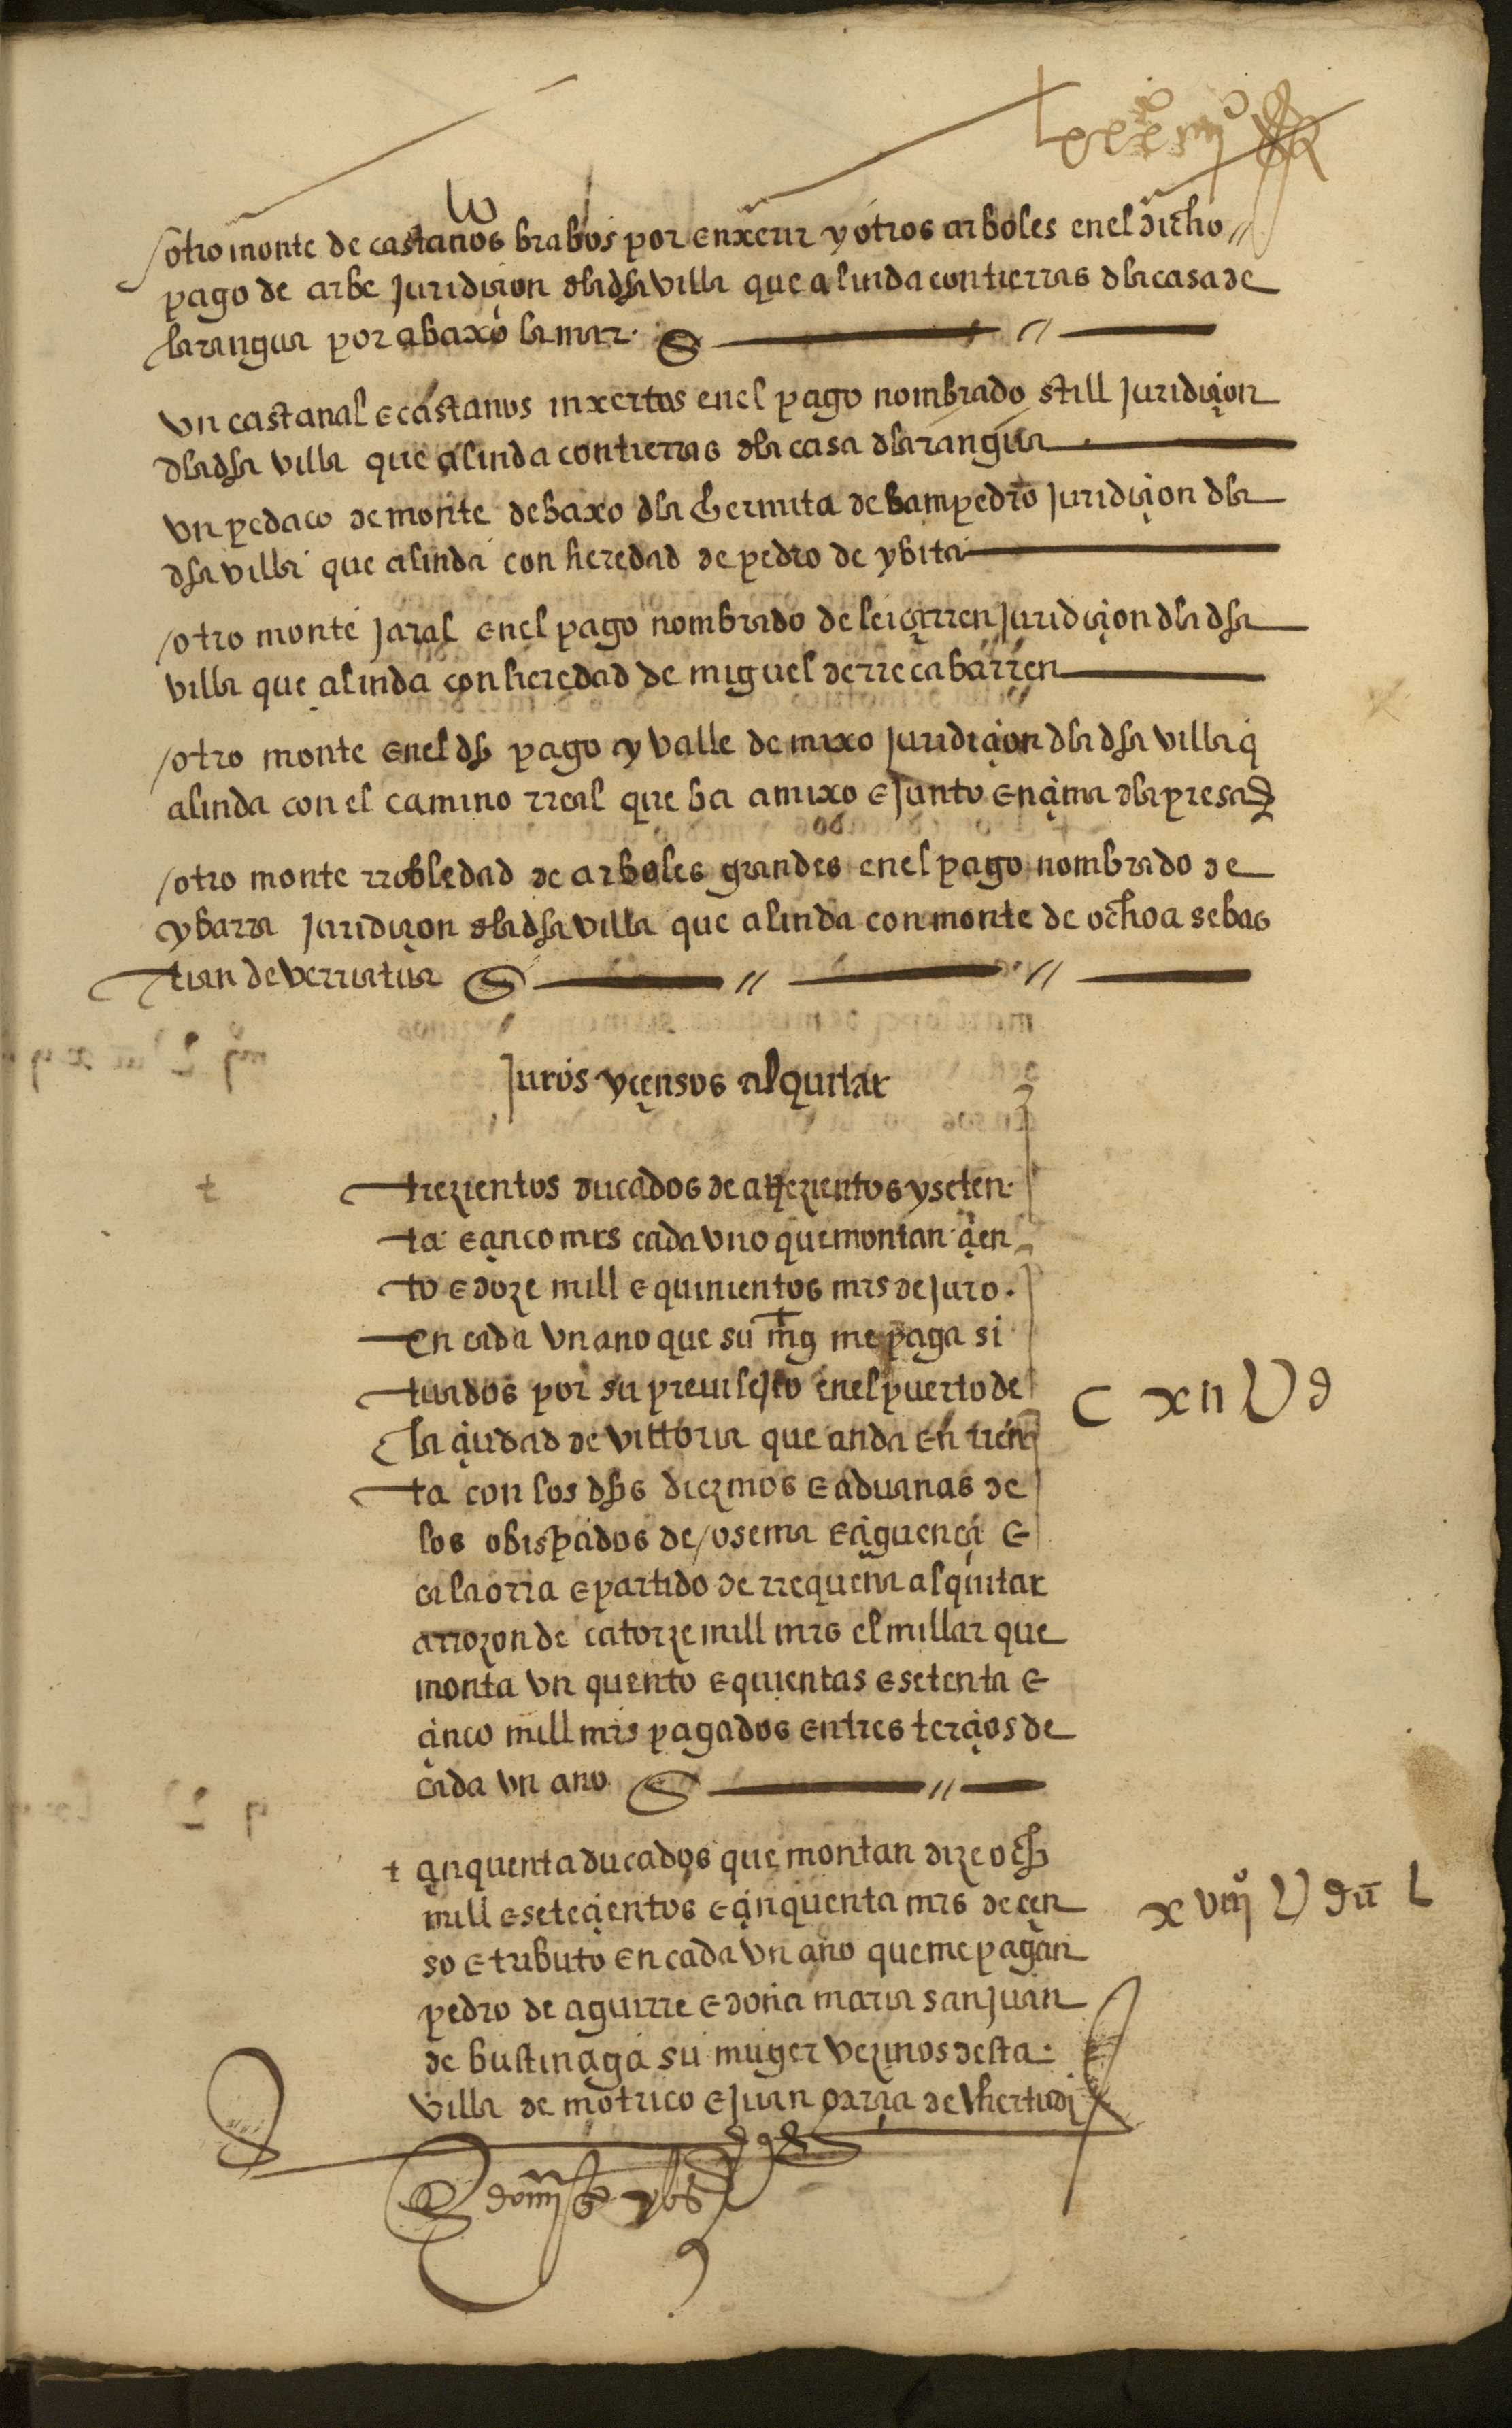 otro monte de castanos brabos por enxerir y otros arboles en el dicho
pago de arbe juridiçion dla dha villa que alinda con tierras dla casa de
larangua por abaxo la mar
un castanal e castanos inxertos en el pago nombrado still juridiçion
dla dha villa que alinda con tierras dla casa dlarangua
un pedaco de monte debaxo dla hermita de sampedro juridiçion dla
dha villa que alinda con heredad de pedro de ybita
otro monte jaral en el pago nombrado de leiçarren juridiçion dla dha
villa que alinda con heredad de miguel de rrecabarren
otro monte en el dho pago y valle de mixo juridiçion dla dha villa q
alinda con el camino rreal que ba a mixo e junto ençima dla presa
otro monte rrobledad de arboles grandes en el pago nombrado de
ybarra juridiçion dla dha villa que alinda con monte de ochoa sebas
tian de verriatua
juros y çensos al quitar
trezientos ducados de a trezientos y seten
ta e çinco mrs cada uno que montan çien
to e doze mill e quinientos mrs de juro
en cada un ano que su mg me paga si
tuados por su previlejio en el puerto de
la çiudad de vittoria que anda en rren
ta con los dhos diezmos e aduanas de
los obispados de osema e çiguença e
calaorra e partido de rrequena al quitar
a rrozon de catorze mill mrs el millar que
monta un quento e quientas e setenta e
çinco mill mrs pagados en tres terçios de
cada un ano
c xii U d
+ çinquenta ducados que montan dize ocho
mill e seteçientos e çinquenta mrs de çen
so e tributo en cada un ano que me pagan
pedro de aguirre e dona maria san juan
de bustinaga su muger vezinos desta
villa de motrico e juan garçia de
x viij U dcc L